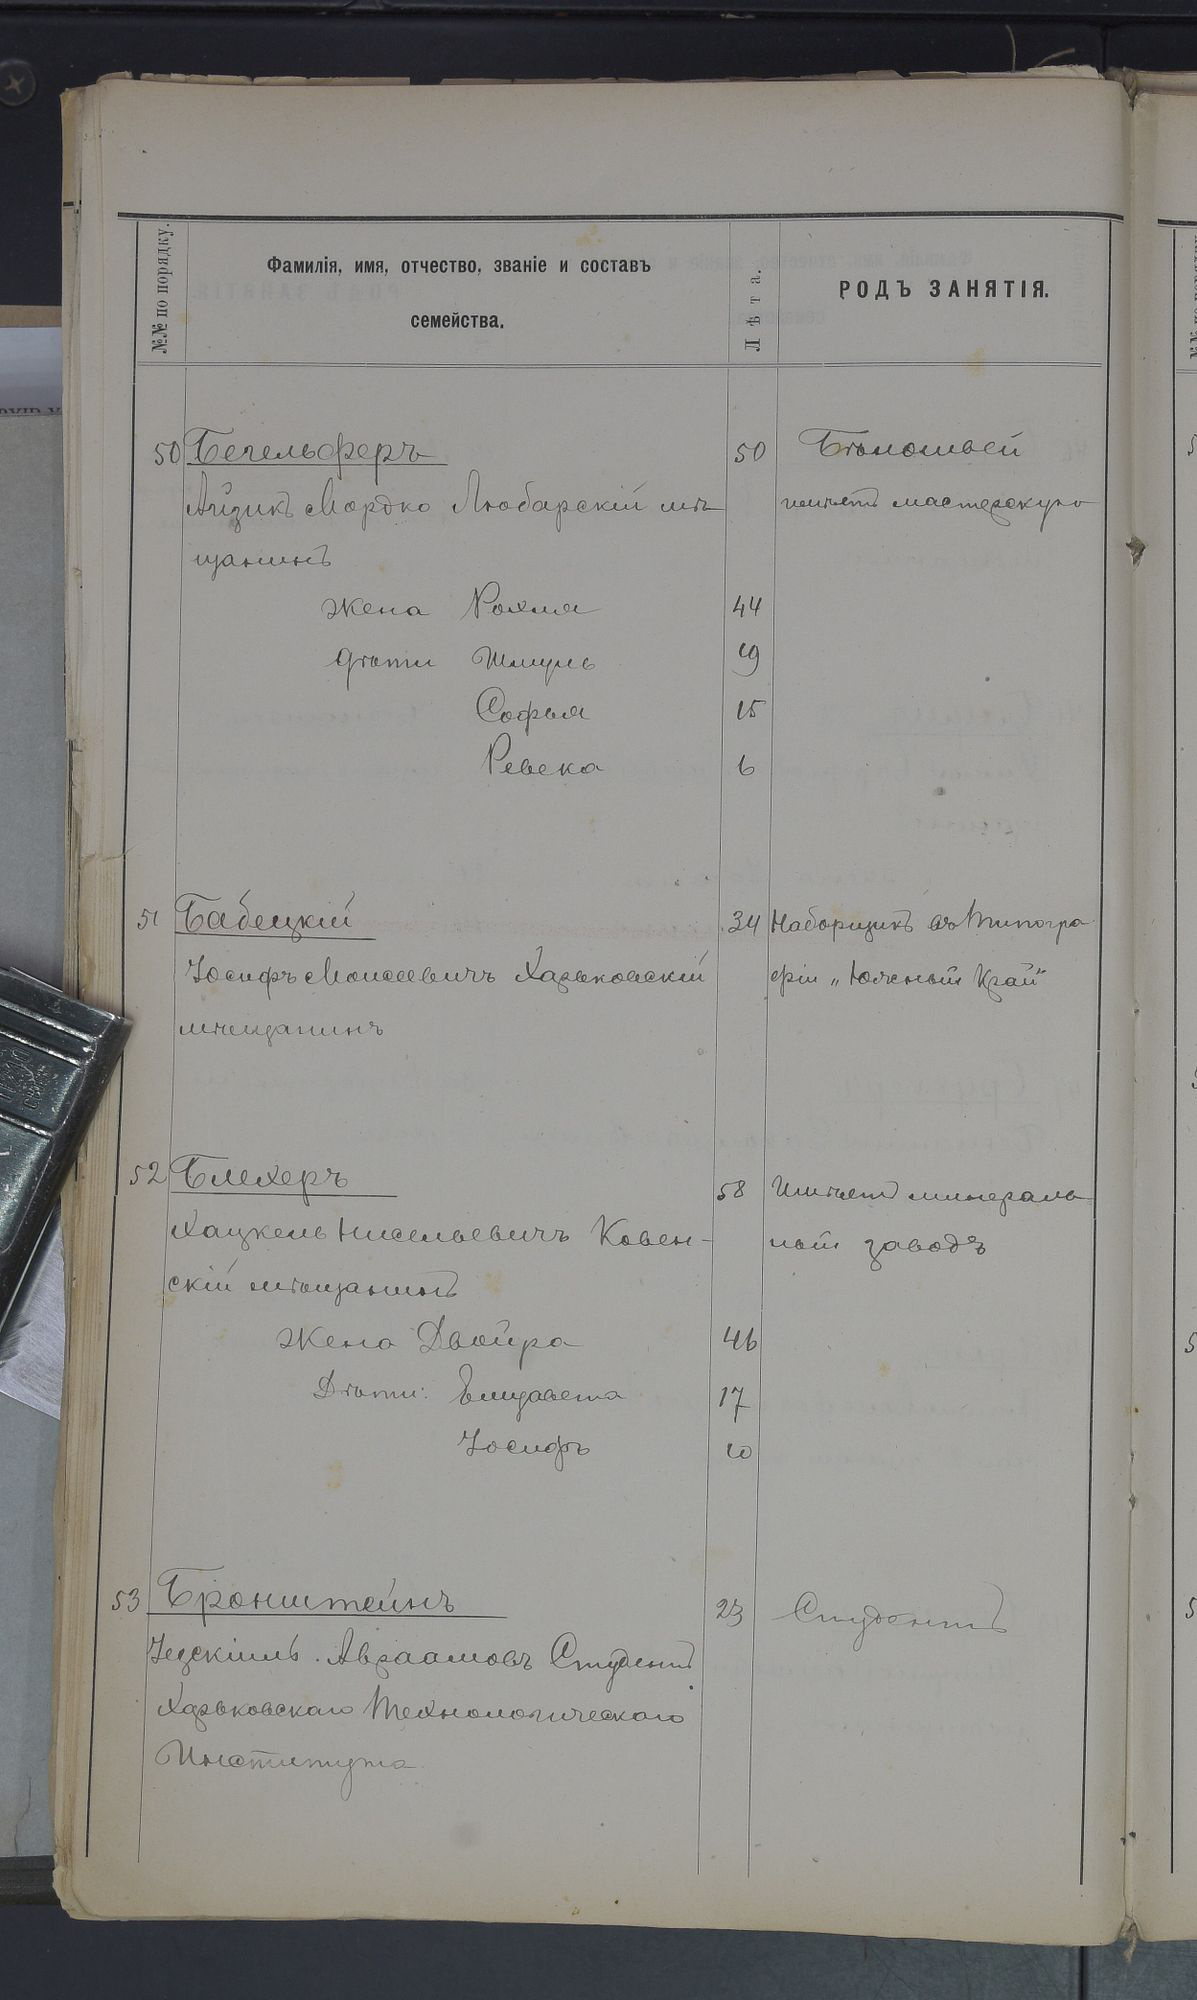 №№ по порядку.
Фамилія, имя, отчество, званіе и составъ
семейства.
Лѣта.
РОДЪ ЗАНЯТІЯ.
50 Бегельферъ 50 Бѣлошвей
Айзикъ Мордко Любарскій мѣ- имѣетъ мастерскую
щанинъ
жена Рохля 44
дѣти Шмуль 19
Софья 15
Ревека 6
51 Бабецкій 34 Наборщикъ въ Типогра
Іосифъ Моисеевичъ Харьковскій фіи „Южный Край"
мѣщанинъ
52 Блехеръ 58 Имѣетъ минераль
Хацкель Нисельевичъ Ковен- ный заводъ
скій мѣщанинъ
Жена Двойра 46
Дѣти: Елизавета 17
Іосифъ 10
53 Бронштейнъ 23 Студентъ
Іезекіиль Авраамовъ Студентъ
Харьковскаго Технологическаго
Института